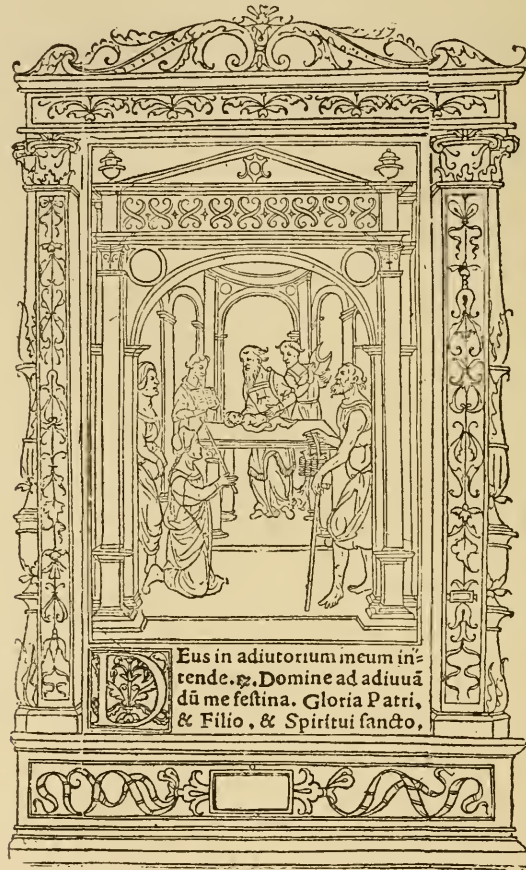 DEus in adiutorium meum in⸗
tende.℟.Domine ad adiuuā
dū me feſtina. Gloria Patri,
& Filio, & Spiritui ſancto,